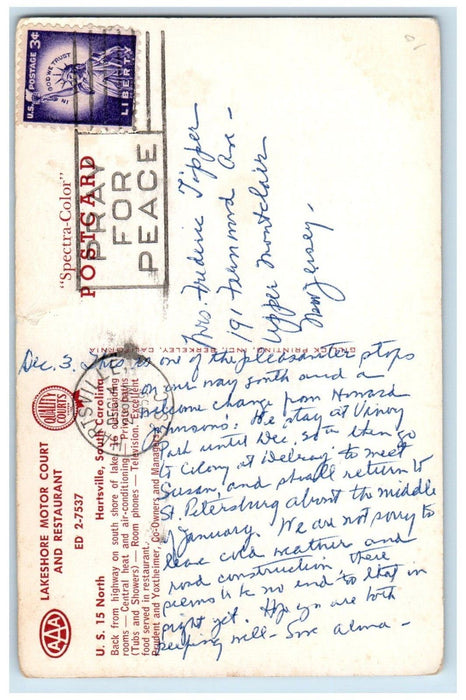 U.S. POSTAGE 3¢
IN GOD WE TRUST
LIBERTY
PRAY
FOR
PEACE
"Spectra-Color"
POSTCARD
Mrs. Frederic Tipper
191 Fernwood Ave -
Upper Montclair
New Jersey -
PRINTING, INC., BERKELEY, CALIFORNIA
Dec. 3. This is one of the pleasanter stops
on our way south and a
welcome change from Howard
Johnson's. We stay at Vinoy
Park until Dec. 20th then go
to Colony at Delray to meet
Susan, and shall return to
St. Petersburg about the middle
of January. We are not sorry to
leave cold weather and
road construction. There
seems to be no end to that in
sight yet. Hope you are both
keeping well - Alma -
AAA
LAKESHORE MOTOR COURT
AND RESTAURANT
ED 2-7537
QUALITY
COURTS
U. S. 15 North Hartsville, South Carolina
Back from highway on south shore of lake. 16 outstanding
rooms — Central heat and air-conditioning — Private baths
(Tubs and Showers) — Room phones — Television. Excellent
food served in restaurant.
Prudent and Yoxtheimer, Co-Owners and Managers